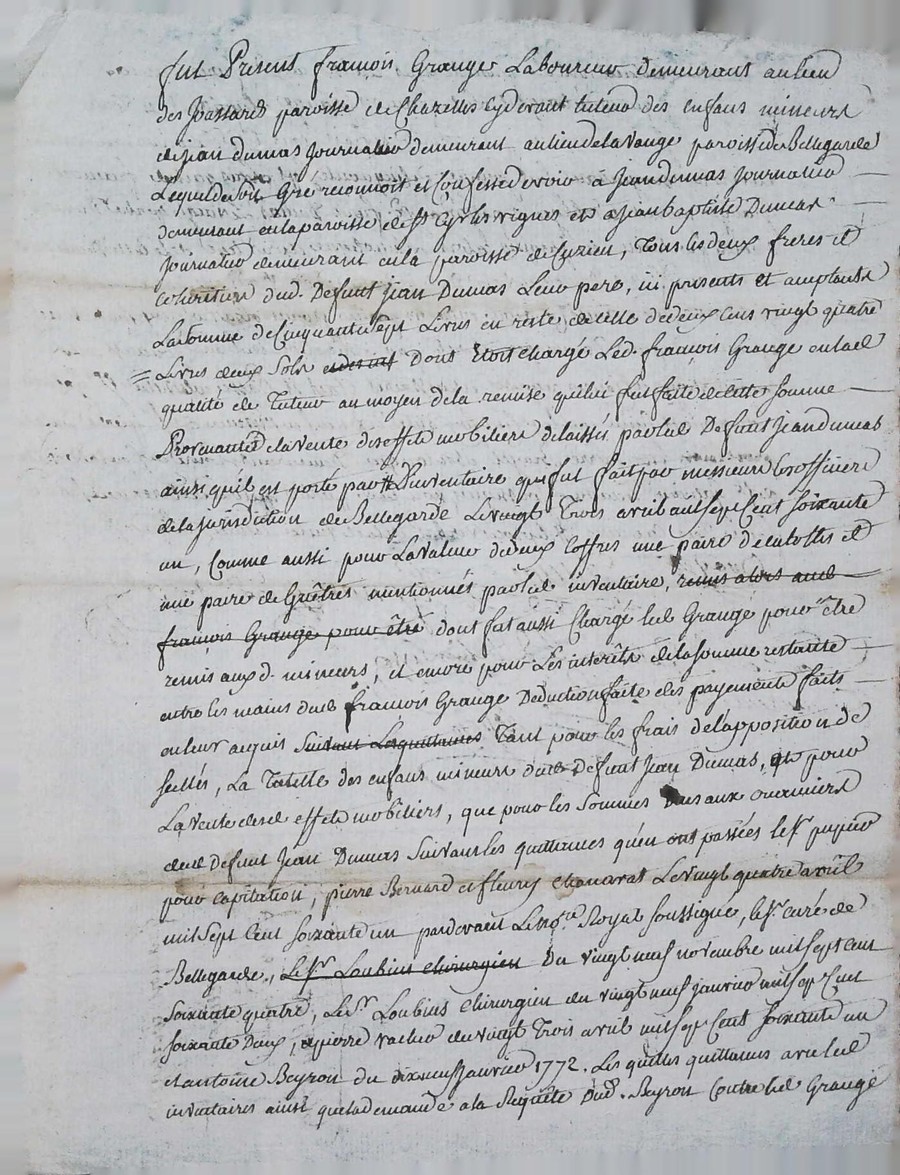 fut Présent françois Grange Laboureur demeurant au lieu
des Jossards paroisse de Chazelles cydevant tuteur des enfans mineurs
de jean dumas journalier demeurant au lieu de la Vauge paroisse de Bellegarde
Lequel de son Gré reconnoit et Confesse devoir a Jean dumas journalier
demeurant en la paroisse de St Cyr les vignes et a jean baptiste Dumas
journalier demeurant en la paroisse de Cuzieu, Tous les deux freres et
cohéritiers dud. Defunt jean Dumas Leur pere, ici presents et acceptants
La Somme de Cinquante Sept Livres en reste de celle de deux cens vingt quatre
Livres deux Sols Dont Etoit chargé Led. françois Grange en lad
qualité de Tuteur au moyen de la remise qu'il lui fut faite de cette somme
Provenante de la vente des effets mobiliers delaissés par led Defunt jean dumas
ainsi qu'il est porté par L'inventaire qui fut fait par messieurs les officiers
de la jurisdiction de Bellegarde Le vingt Trois avril mil sept Cent soixante
un, Comme aussi pour La valeur de deux Coffres une paire de culottes et
une paire de Guêtres mentionnés par led inventaire, remis alors aud
françois Grange pour être dont fut aussi Chargé led Grange pour être
remis auxd. mineurs, et encore pour Les interêts de la somme restante
entre les mains dud françois Grange Deduction faite des payements faits
en leur acquis Suivant Les quittances Tant pour les frais de l'apposition de
scellés, La Tutelle des enfans mineurs dud Defunt Jean Dumas, et pour
La vente desd effets mobiliers, que pour les Sommes dues aux creanciers
dud defunt Jean Dumas Suivant les quittances qu'en ont passées le Sr pupier
pour Capitation, pierre Bernard et fleury Chonavat Le vingt quatre avril
mil Sept Cent soixante un pardevant Le nore Royal soussigné, le Sr curé de
Bellegarde, Le Sr Loubius chirurgien Du vingt neuf novembre mil sept cent
Soixante quatre, Le Sr Loubius chirurgien du vingt neuf janvier mil sept Cent
soixante Deux, a pierre vacher du vingt Trois avril mil sept Cent soixante un
et antoine Beyron du dix neuf janvier 1772. Les quelles quittances avec led
inventaires ainsi que la demande a la Requête Dud. Beyron Contre led Grange